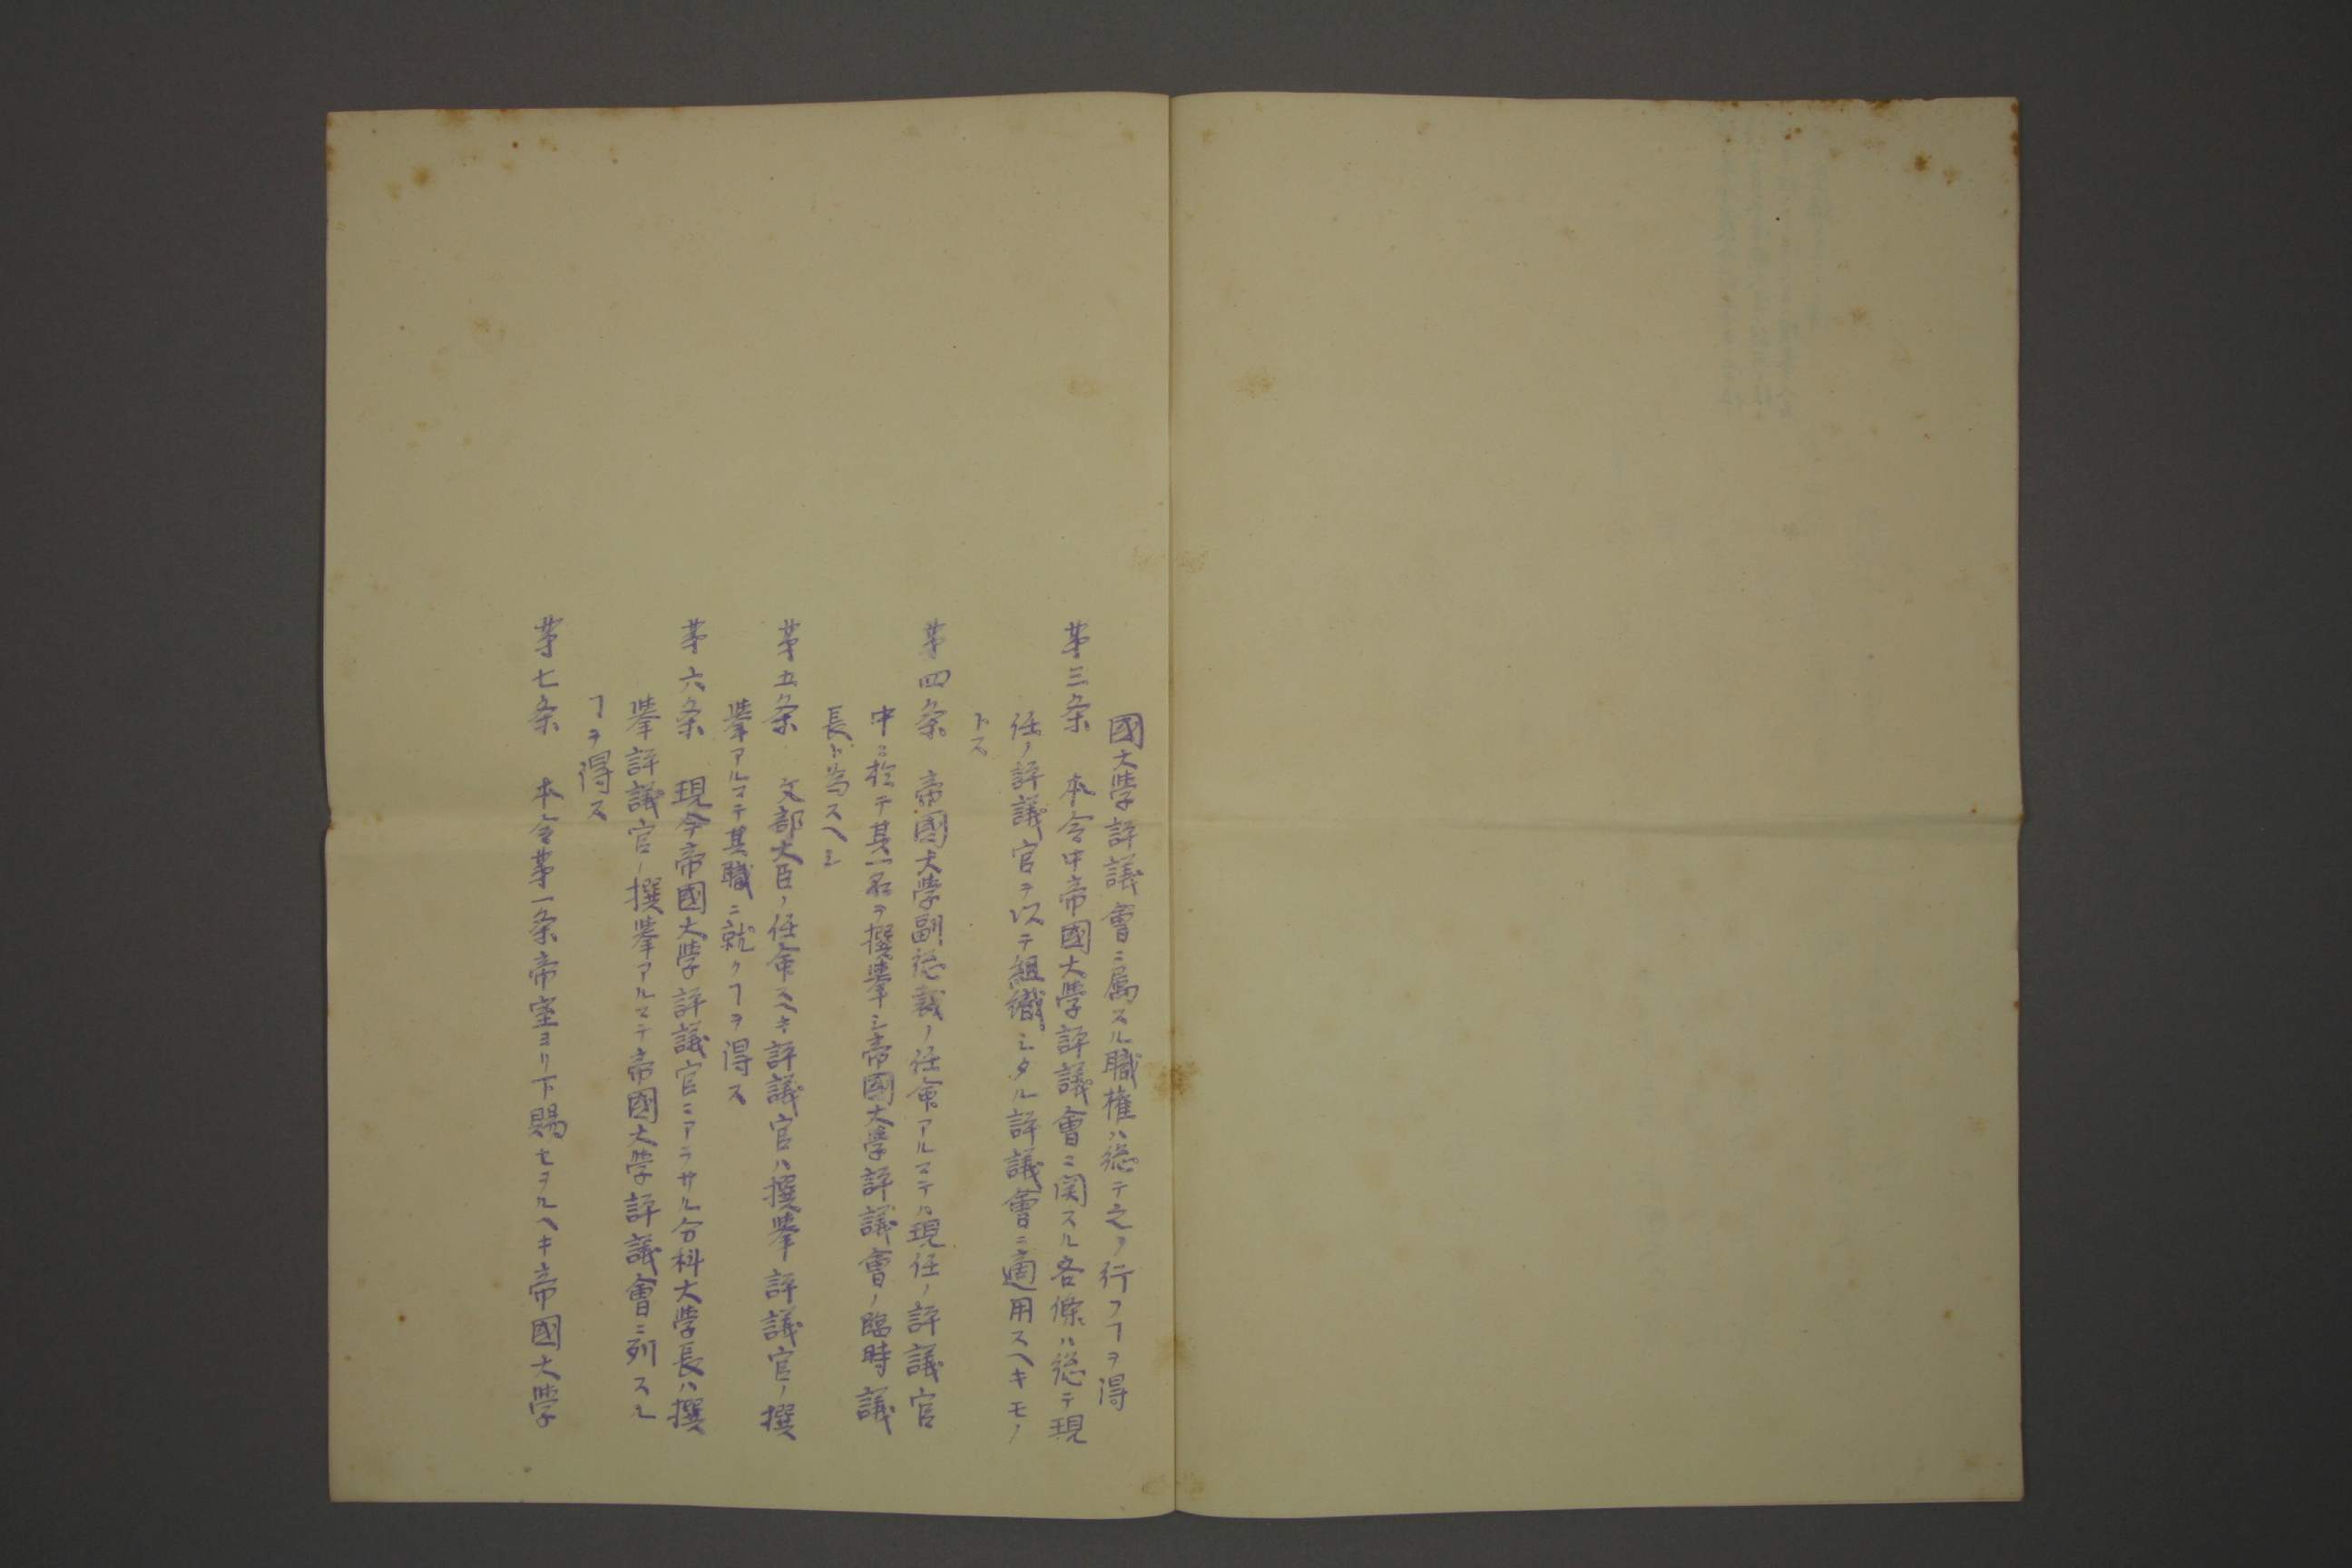 國大學評議會ニ屬スル職権ハ総テ之ヲ行フヿヲ得
第三条　本令中帝國大學評議會ニ関スル各條ハ総テ現
任ノ評議官ヲ以テ組織シタル評議會ニ適用スヘキモノ
トス
第四条　帝國大學副総裁ノ任命アルマテハ現任ノ評議官
中ニ於テ其一名ヲ撰挙シ帝國大學評議會ノ臨時議
長ト為スヘシ
第五条　文部大臣ノ任命スヘキ評議官ハ撰挙評議官ノ撰
挙アルマテ其職ニ就クヿヲ得ス
第六条　現今帝國大學評議官ニアラサル分科大學長ハ撰
挙評議官ノ撰挙アルマテ帝國大學評議會ニ列スル
ヿヲ得ス
第七条　本令第一条帝室ヨリ下賜セラルヘキ帝國大學